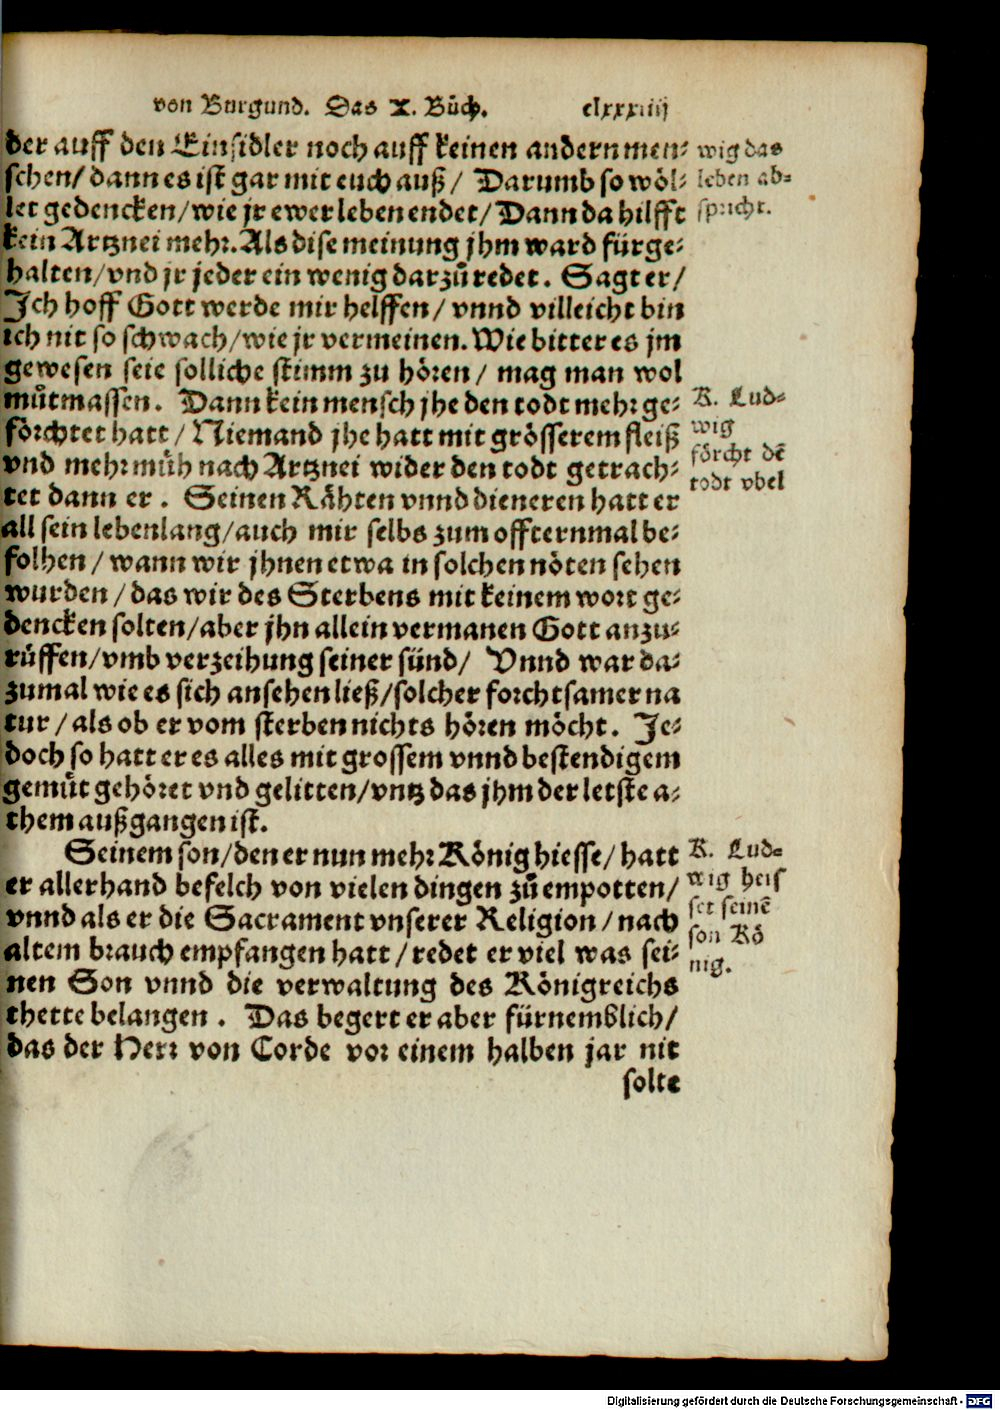 von Burgund. Das X. Bůch. clxxxiiij
der auff den Einsidler noch auff keinen andern men⸗
schen/ dann es ist gar mit euch auß/ Darumb so wöl⸗
let gedencken/ wie jr ewer leben endet/ Dann da hilfft
kein Artznei mehr. Als dise meinung jhm ward fürge⸗
halten/ vnd jr jeder ein wenig darzů redet. Sagt er/
Ich hoff Gott werde mir helffen/ vnnd villeicht bin
ich nit so schwach/ wie jr vermeinen. Wie bitter es jm
gewesen seie solliche stimm zu hören/ mag man wol
můtmassen. Dann kein mensch jhe den todt mehr ge⸗
förchtet hatt/ Niemand jhe hatt mit grösserem fleiß
vnd mehr müh nach Artznei wider den todt getrach⸗
tet dann er. Seinen Rähten vnnd dieneren hatt er
all sein lebenlang/ auch mir selbs zum offternmal be⸗
folhen/ wann wir jhnen etwa in solchen nöten sehen
wurden/ das wir des Sterbens mit keinem wort ge⸗
dencken solten/ aber jhn allein vermanen Gott anzu⸗
rüffen/ vmb verzeihung seiner sünd/ Vnnd war da⸗
zumal wie es sich ansehen ließ/ solcher forchtsamer na
tur/ als ob er vom sterben nichts hören möcht. Je⸗
doch so hatt er es alles mit grossem vnnd bestendigem
gemüt gehöret vnd gelitten/ vntz das jhm der letste a⸗
them außgangen ist.
Seinem son/ den er nun mehr König hiesse/ hatt
er allerhand befelch von vielen dingen zů empotten/
vnnd als er die Sacrament vnserer Religion/ nach
altem brauch empfangen hatt/ redet er viel was sei⸗
nen Son vnnd die verwaltung des Königreichs
thette belangen. Das begert er aber fürnemblich/
das der Herr von Corde vor einem halben jar nit
solte
wig das
leben ab⸗
spricht.
K. Lud⸗
wig
förcht dē
todt vbel
K. Lud⸗
wig heis
set seinē
son Kö
nig.
Digitalisierung gefördert durch die Deutsche Forschungsgemeinschaft - DFG